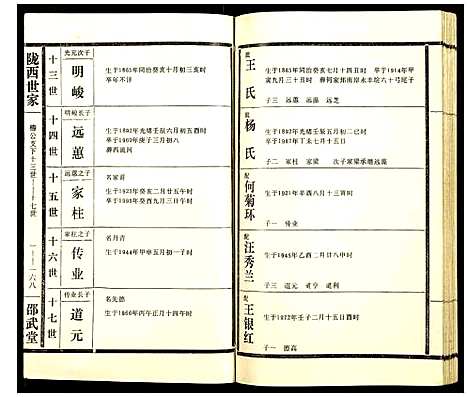 陇西世家
梅公支下十三世——十七世
一——一六八
邵武堂
十三世
光元次子
明峻
生于1863年同治癸亥十月初三亥时
卒年不详
配
王氏
生于1863年同治癸亥七月十四丑时 卒于1914年甲
子三 远惠 远藻 远芝
十四世
明峻长子
远蕙
生于1892年光绪壬辰六月初五酉时
卒于1960年庚子三月初八
葬西流河
配
杨氏
生于1892年光绪壬辰五月初二巳时
卒于1987年丁亥七月十五日
子二 家柱 家梁 次子家梁承继远藻
十五世
远蕙之子
家柱
名家首
生于1923年癸亥二月廿五午时
卒于1993年癸酉九月三日午时
配
何菊环
生于1921年辛酉八月十三寅时
子一 传业
十六世
家柱之子
传业
名丹青
生于1944年甲申五月初一子时
配
汪秀兰
生于1945年乙酉二月廿八申时
子三 道元 道亨 道利
十七世
传业长子
道元
名先德
生于1966年丙午正月十四午时
配
王银红
生于1972年壬子二月十五日酉时
子一 德高